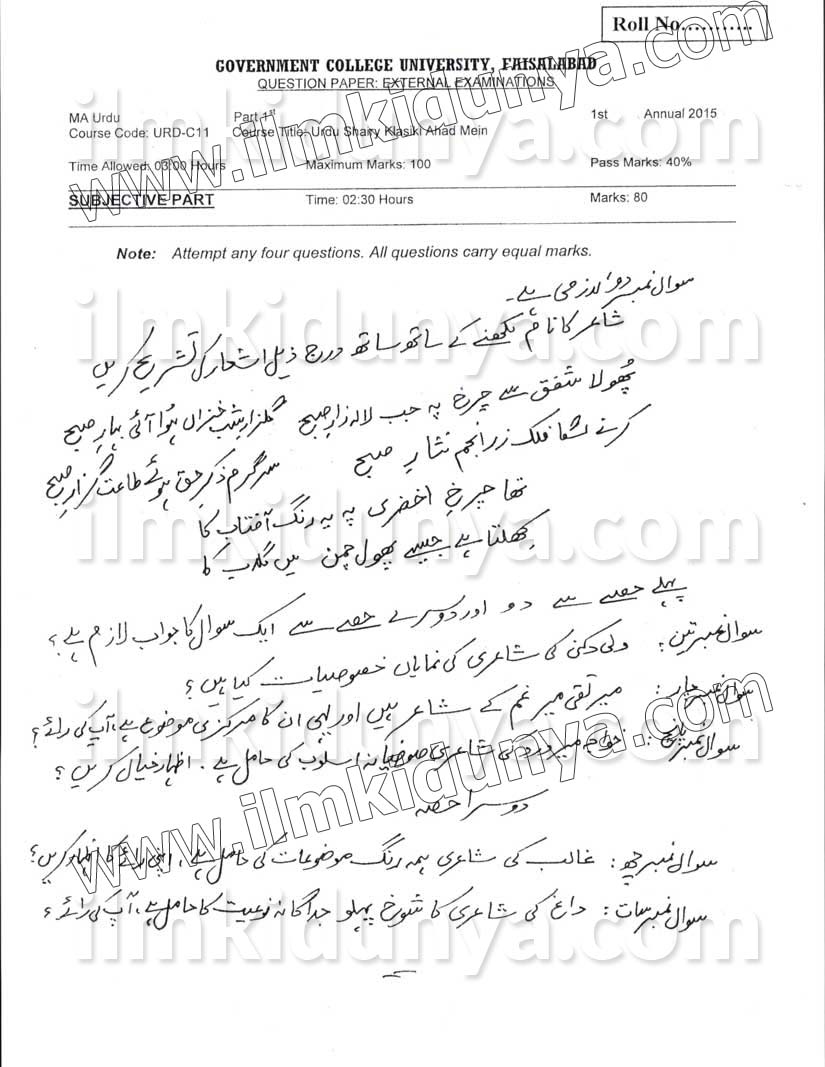 Roll No...........
GOVERNMENT COLLEGE UNIVERSITY, FAISALABAD
QUESTION PAPER: EXTERNAL EXAMINATIONS
MA Urdu Part 1st 1st Annual 2015
Course Code: URD-C11 Course Title: Urdu Shary Klasiki Ahad Mein
Time Allowed: 03:00 Hours Maximum Marks: 100 Pass Marks: 40%
SUBJECTIVE PART Time: 02:30 Hours Marks: 80
Note: Attempt any four questions. All questions carry equal marks.
سوال نمبر دو لازمی ہے۔
شاعر کا نام لکھنے کے ساتھ ساتھ درج ذیل اشعار کی تشریح کریں
پھولا شفق سے چرخ پہ جب لالہ زارِ صبح گلزارِ شب خزاں ہوا آئی بہارِ صبح
کرنے لگا فلک زرِ انجم نثارِ صبح سرگرم ذکرِ حق ہوئے طاعت گزارِ صبح
تھا چرخِ اخضری پہ یہ رنگ آفتاب کا
کھلتا ہے جیسے پھول چمن میں گلاب کا
پہلے حصے سے دو اور دوسرے حصے سے ایک سوال کا جواب لازم ہے؟
سوال نمبر تین: ولی دکنی کی شاعری کی نمایاں خصوصیات کیا ہیں؟
سوال نمبر چار: میر تقی میر غم کے شاعر ہیں اور یہی ان کا مرکزی موضوع ہے، آپ کی رائے؟
سوال نمبر پانچ: خواجہ میر درد کی شاعری صوفیانہ اسلوب کی حامل ہے۔ اظہار خیال کریں؟
دوسرا حصہ
سوال نمبر چھ: غالب کی شاعری ہمہ رنگ موضوعات کی حامل ہے، اپنی رائے کا اظہار کریں؟
سوال نمبر سات: داغ کی شاعری کا شوخ پہلو جداگانہ نوعیت کا حامل ہے، آپ کی رائے؟
www.ilmkidunya.com
ilmkidunya.com
ilmkidunya.com
ilmkidunya.com
www.ilmkidunya.com
ilmkidunya.com